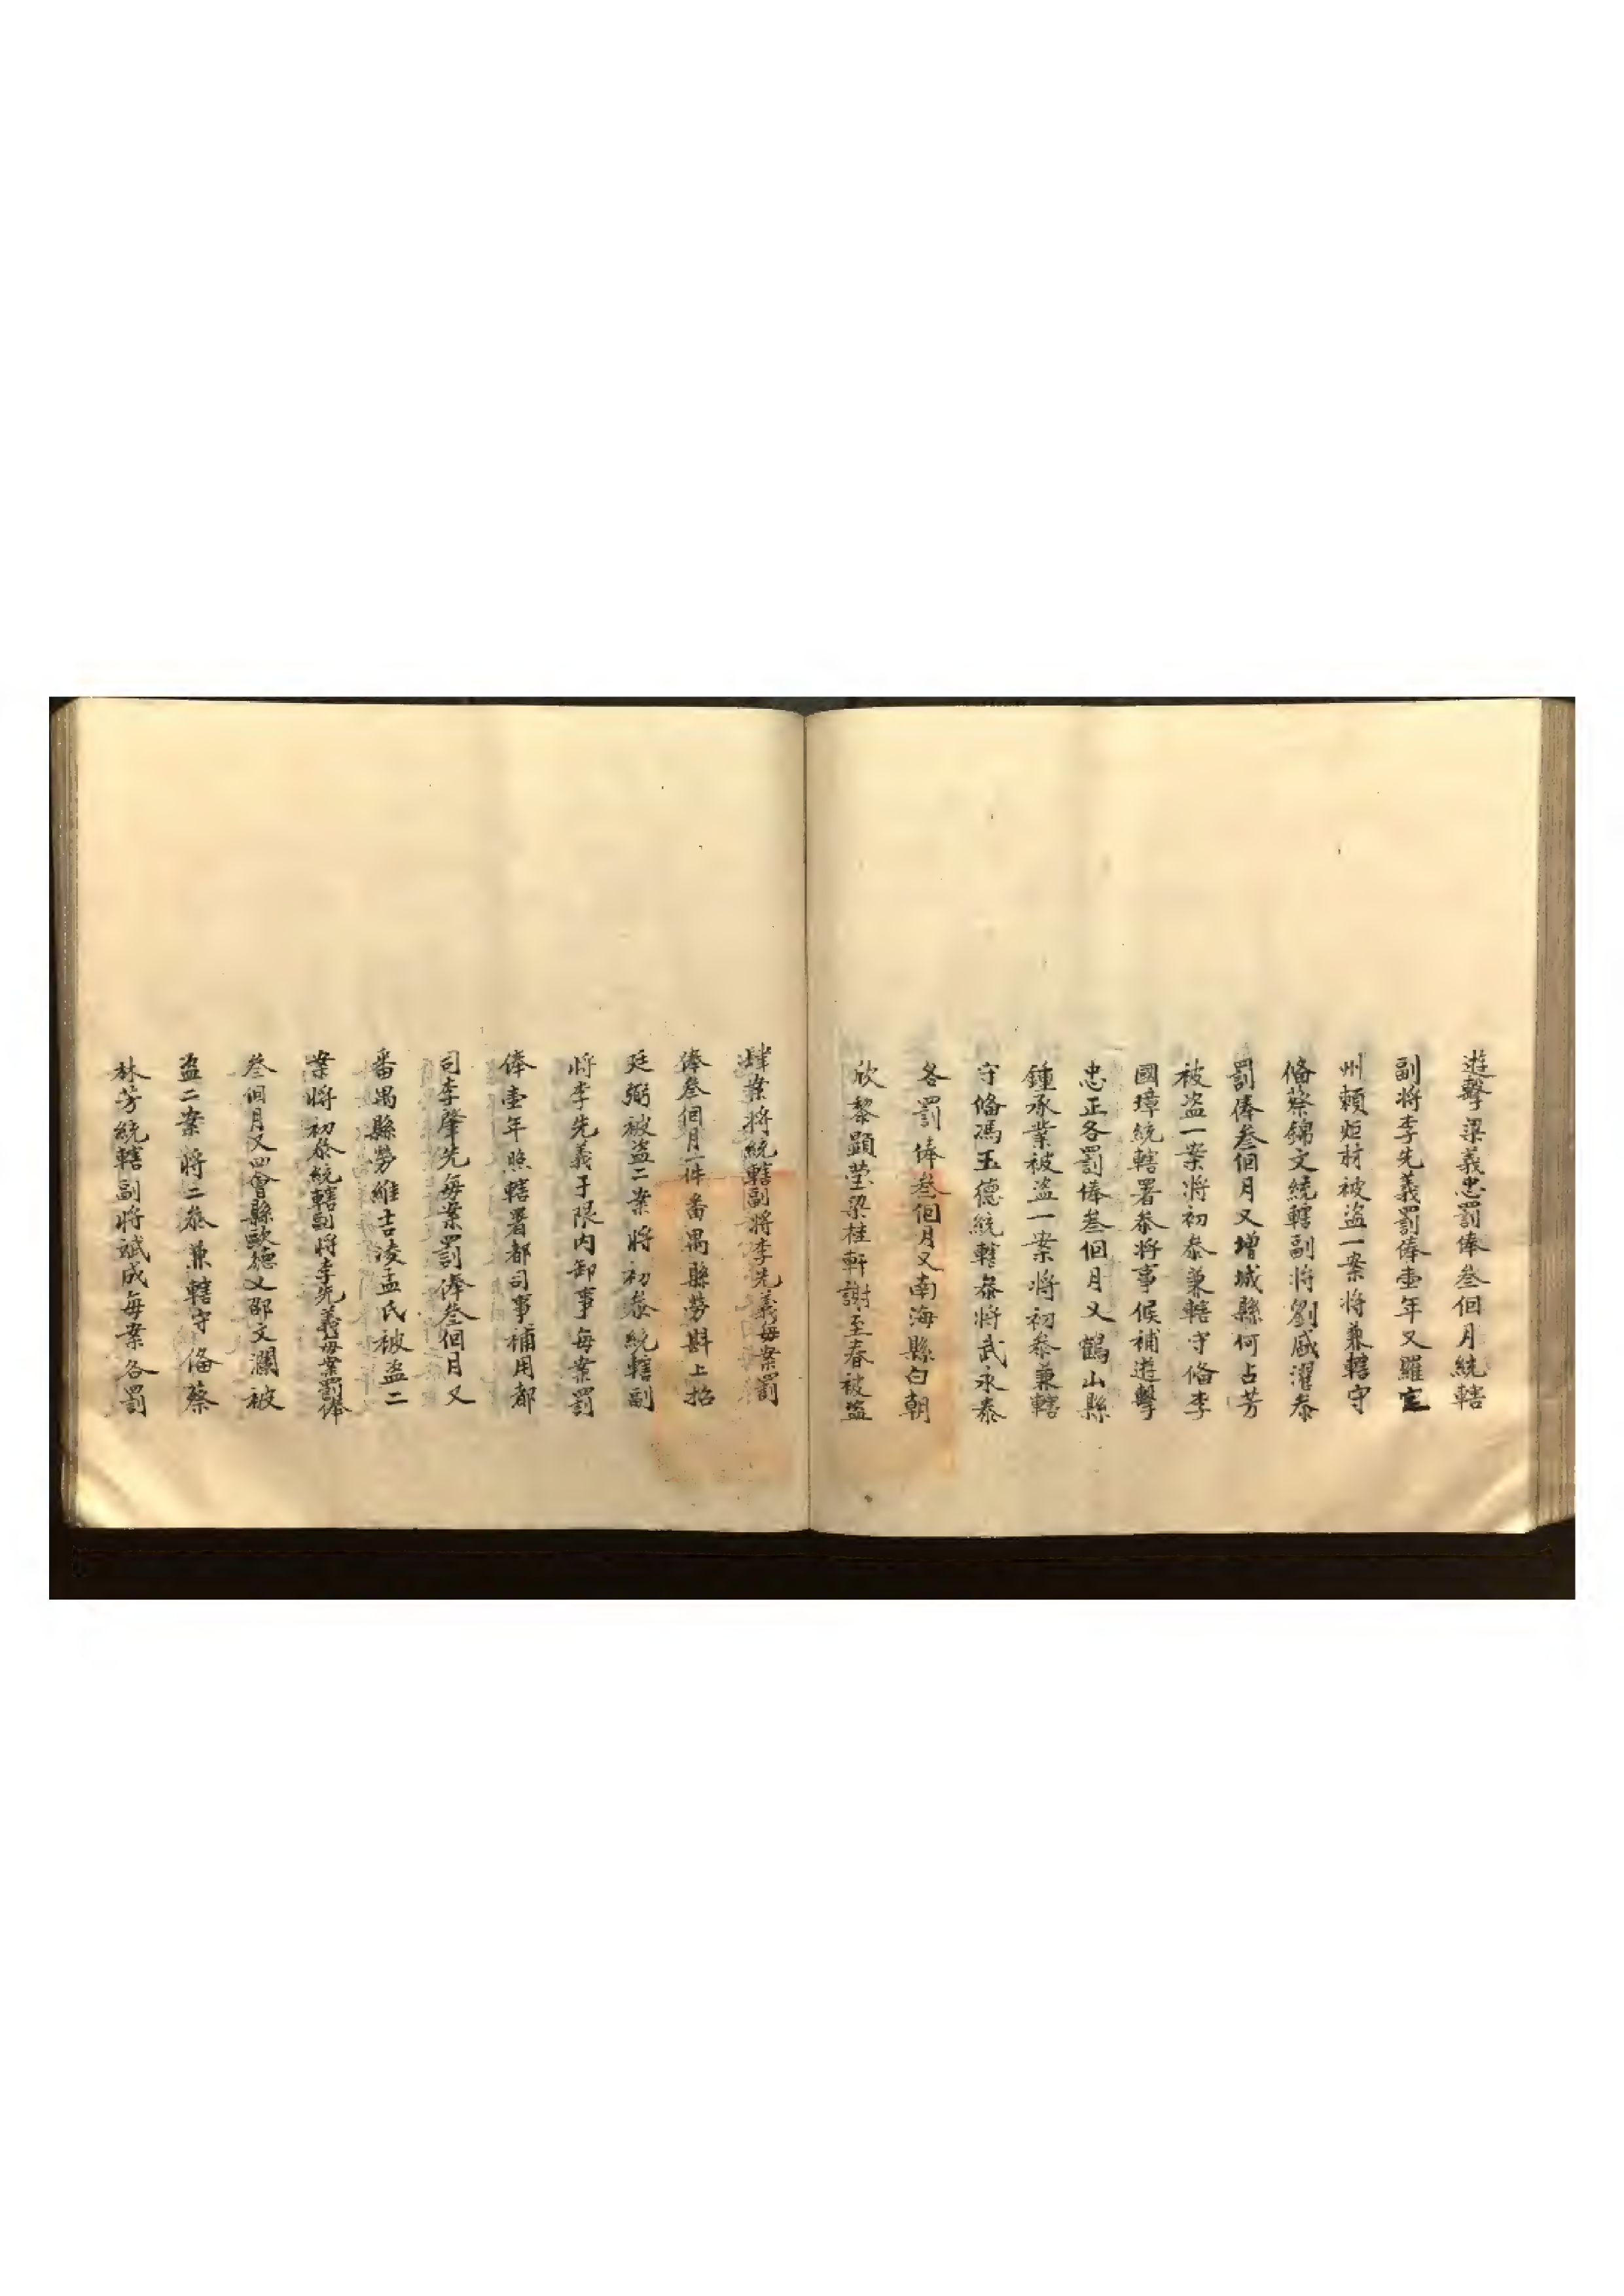 遊擊梁義忠罰俸叁個月統轄
副將李先義罰俸壹年又羅定
州賴炬材被盜一案將兼轄守
俻蔡錦文統轄副將劉威濯叅
罰俸叁個月又增城縣何占芳
被盜一案將初叅兼轄守俻李
國璋統轄署叅將事候補遊擊
忠正各罰俸叁個月又鶴山縣
鍾承業被盜一案將初叅兼轄
守俻馮玉德統轄叅將武永泰
各罰俸叁個月又南海縣白朝
欣黎顯瑩梁桂軒謝至春被盜
肆案將統轄副將李先義每案罰
俸叁個月一件番禺縣勞斟上招
廷弼被盜二案將初叅統轄副
將李先義于限内卸事每案罰
俸壹年照轄署都司事補用都
司李肇先每案罰俸叁個月又
番禺縣勞維吉凌孟氏被盜二
案將初叅統轄副將李先義每案罰俸
叁個月又四會縣歐德又邵文瀾被
盜二案將二叅兼轄守俻蔡
林芳統轄副將斌成每案各罰